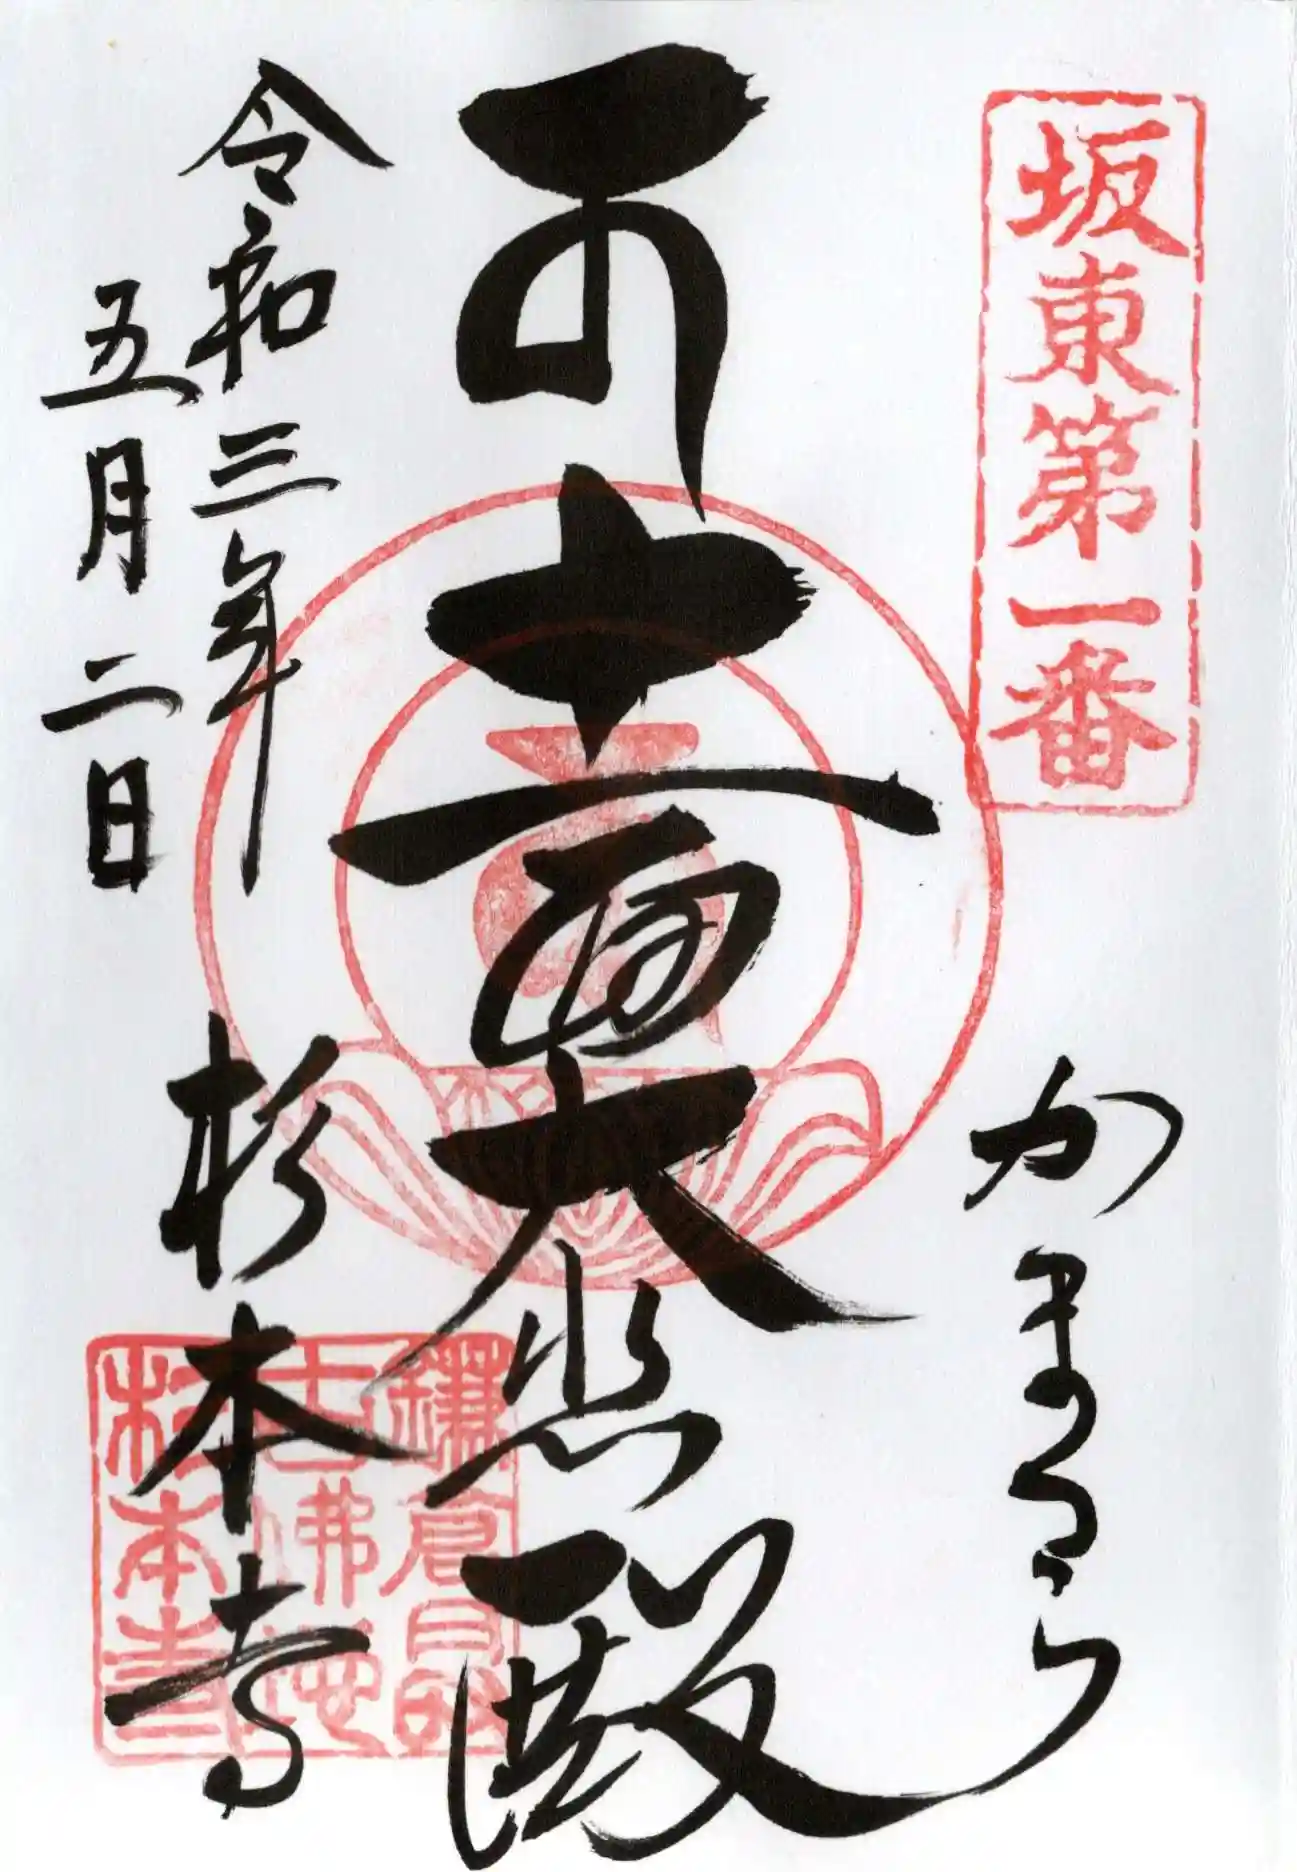 坂東第一番
かまくら
十一面大悲殿
令和三年
五月二日
杉本寺
鎌倉最
古佛地
杉本寺